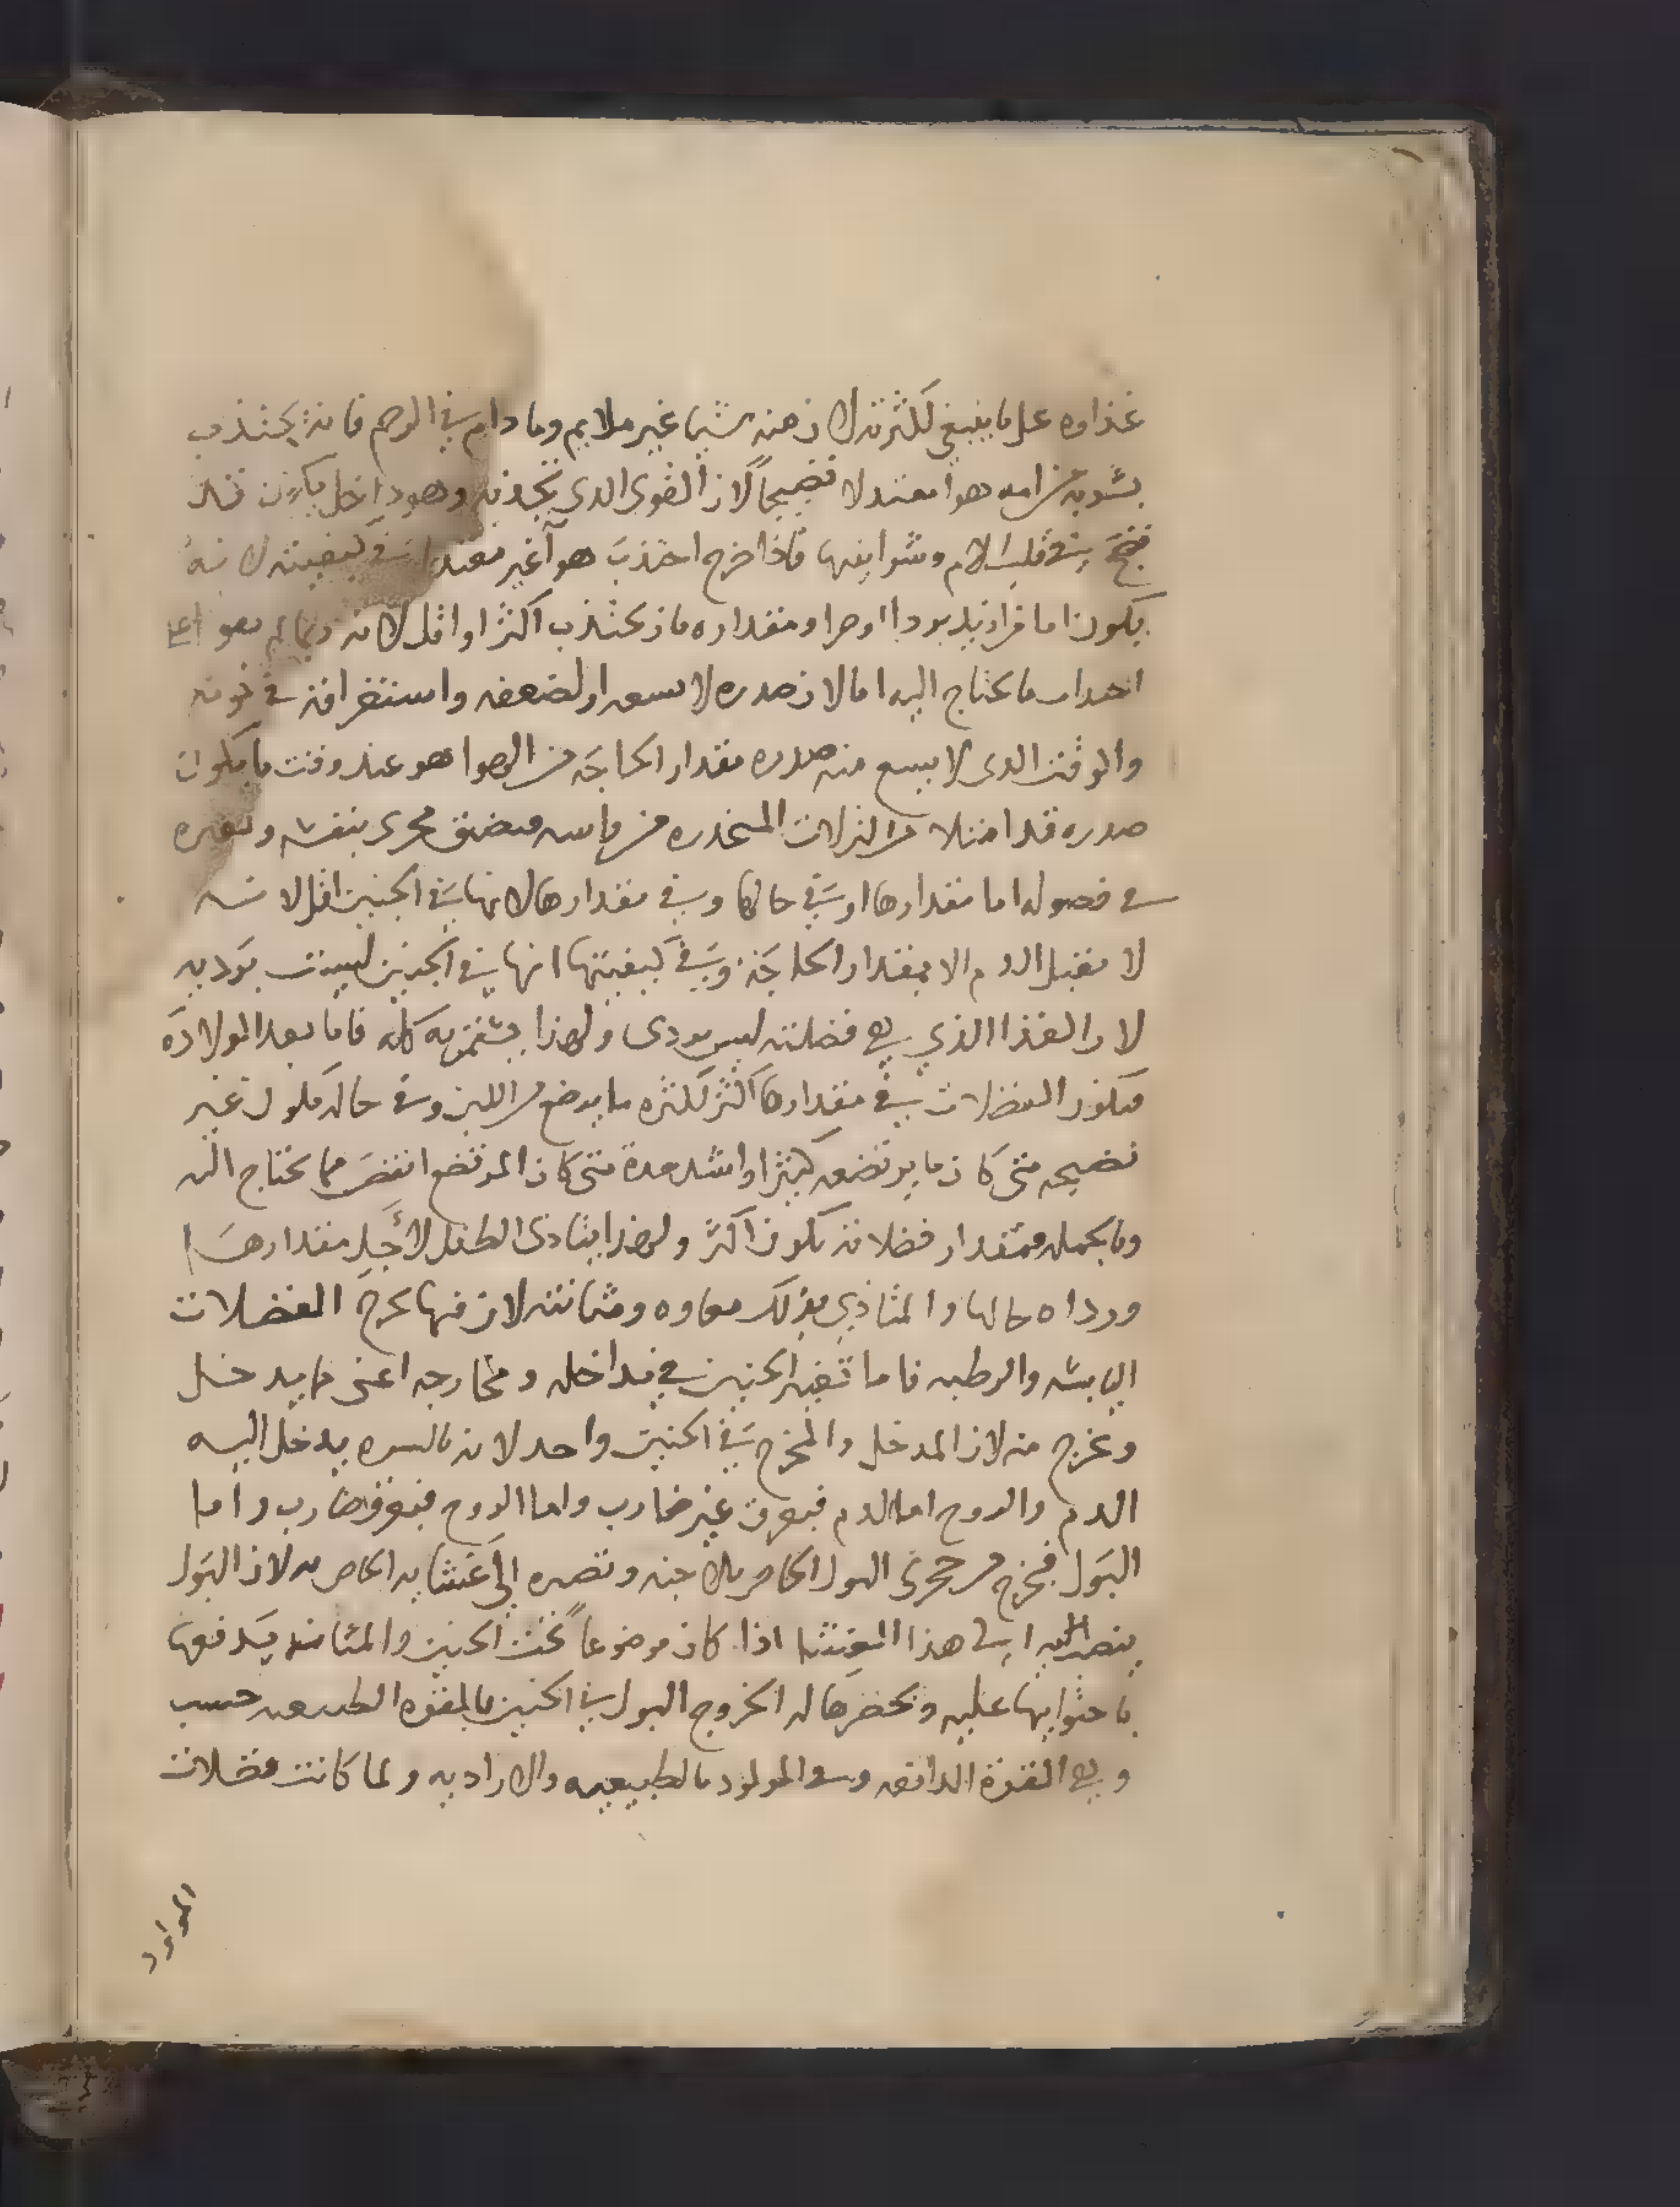 غذاوه على ما ينبغي لكثرته لان منه شيا غير ملايم وما دام في الرحم فانه يجتذب
بسويه من امه هوا معتدلا نضيجا لان القوى الذي تجذبه وهو داخل يكون قد
نضج في قلب الام وشرايينها فاذا خرج اجتذب هوآ غير معتدل في كيفيته لانه
يكون اما مزاد يد بردا او حرا ومقداره فان يجتذب اكثر او اقل لانه ربما لم يقو على
اجتذاب ما يحتاج اليه اما لان صدره لا يسعه او لضعفه واستغراقه في نومه
والوقت الذي لا يسع منه صدره مقدار الحاجه من الهوا هو عند وقت ما يكون
صدره قد امتلا من النزلات المنحدره من راسه فيضيق مجرى نفسه وتغيره
في فصوله اما مقدارها او في حالها وفي مقدارها لانها في الجنين اقل لانه
لا يقبل الدم الا بمقدار الحاجة وفي كيفيتها انها في الجنين ليست موديه
لان الغذا الذي هي فضلته ليس بردى ولهذا يغتذي به كله فاما بعد الولادة
فتكون الفضلات في مقدارها اكثر لكثره ما يرضع من اللبن وفي حاله تكون غير
نضيجه متى كان ما يرتضعه كثيرا واشد مدة متى كان المرتضع انقص مما يحتاج اليه
وبالجمله فمقدار فضلاته تكون اكثر ولهذا يتاذى الطفل لأجل مقدارها
ورداه حالها والمتاذي بذلك معاوه ومثانته لان فيها تخرج الفضلات
اليابسه والرطبه فاما تغير الجنين في مداخله ومخارجه اعنى ما يدخل
ويخرج منه لان المدخل والمخرج في الجنين واحد لانه بالسره يدخل اليه
الدم والروح اما الدم فبعرق غير ضارب واما الروح فبعرق ضارب واما
البول فيخرج من مجرى البول الخاص بالاجنه وتصيره إلى غشايه الخاص به لان البول
ينصب اليه الى هذا الغشا اذا كان موضوعا تحت الجنين والمثانه يدفعها
باحتوايها عليه وتحضرها له الخروج البول في الجنين بالقوه الطبيعيه حسب
وهي القوة الدافعه وفي المولود بالطبيعيه والاراديه ولما كانت فضلات
المولود